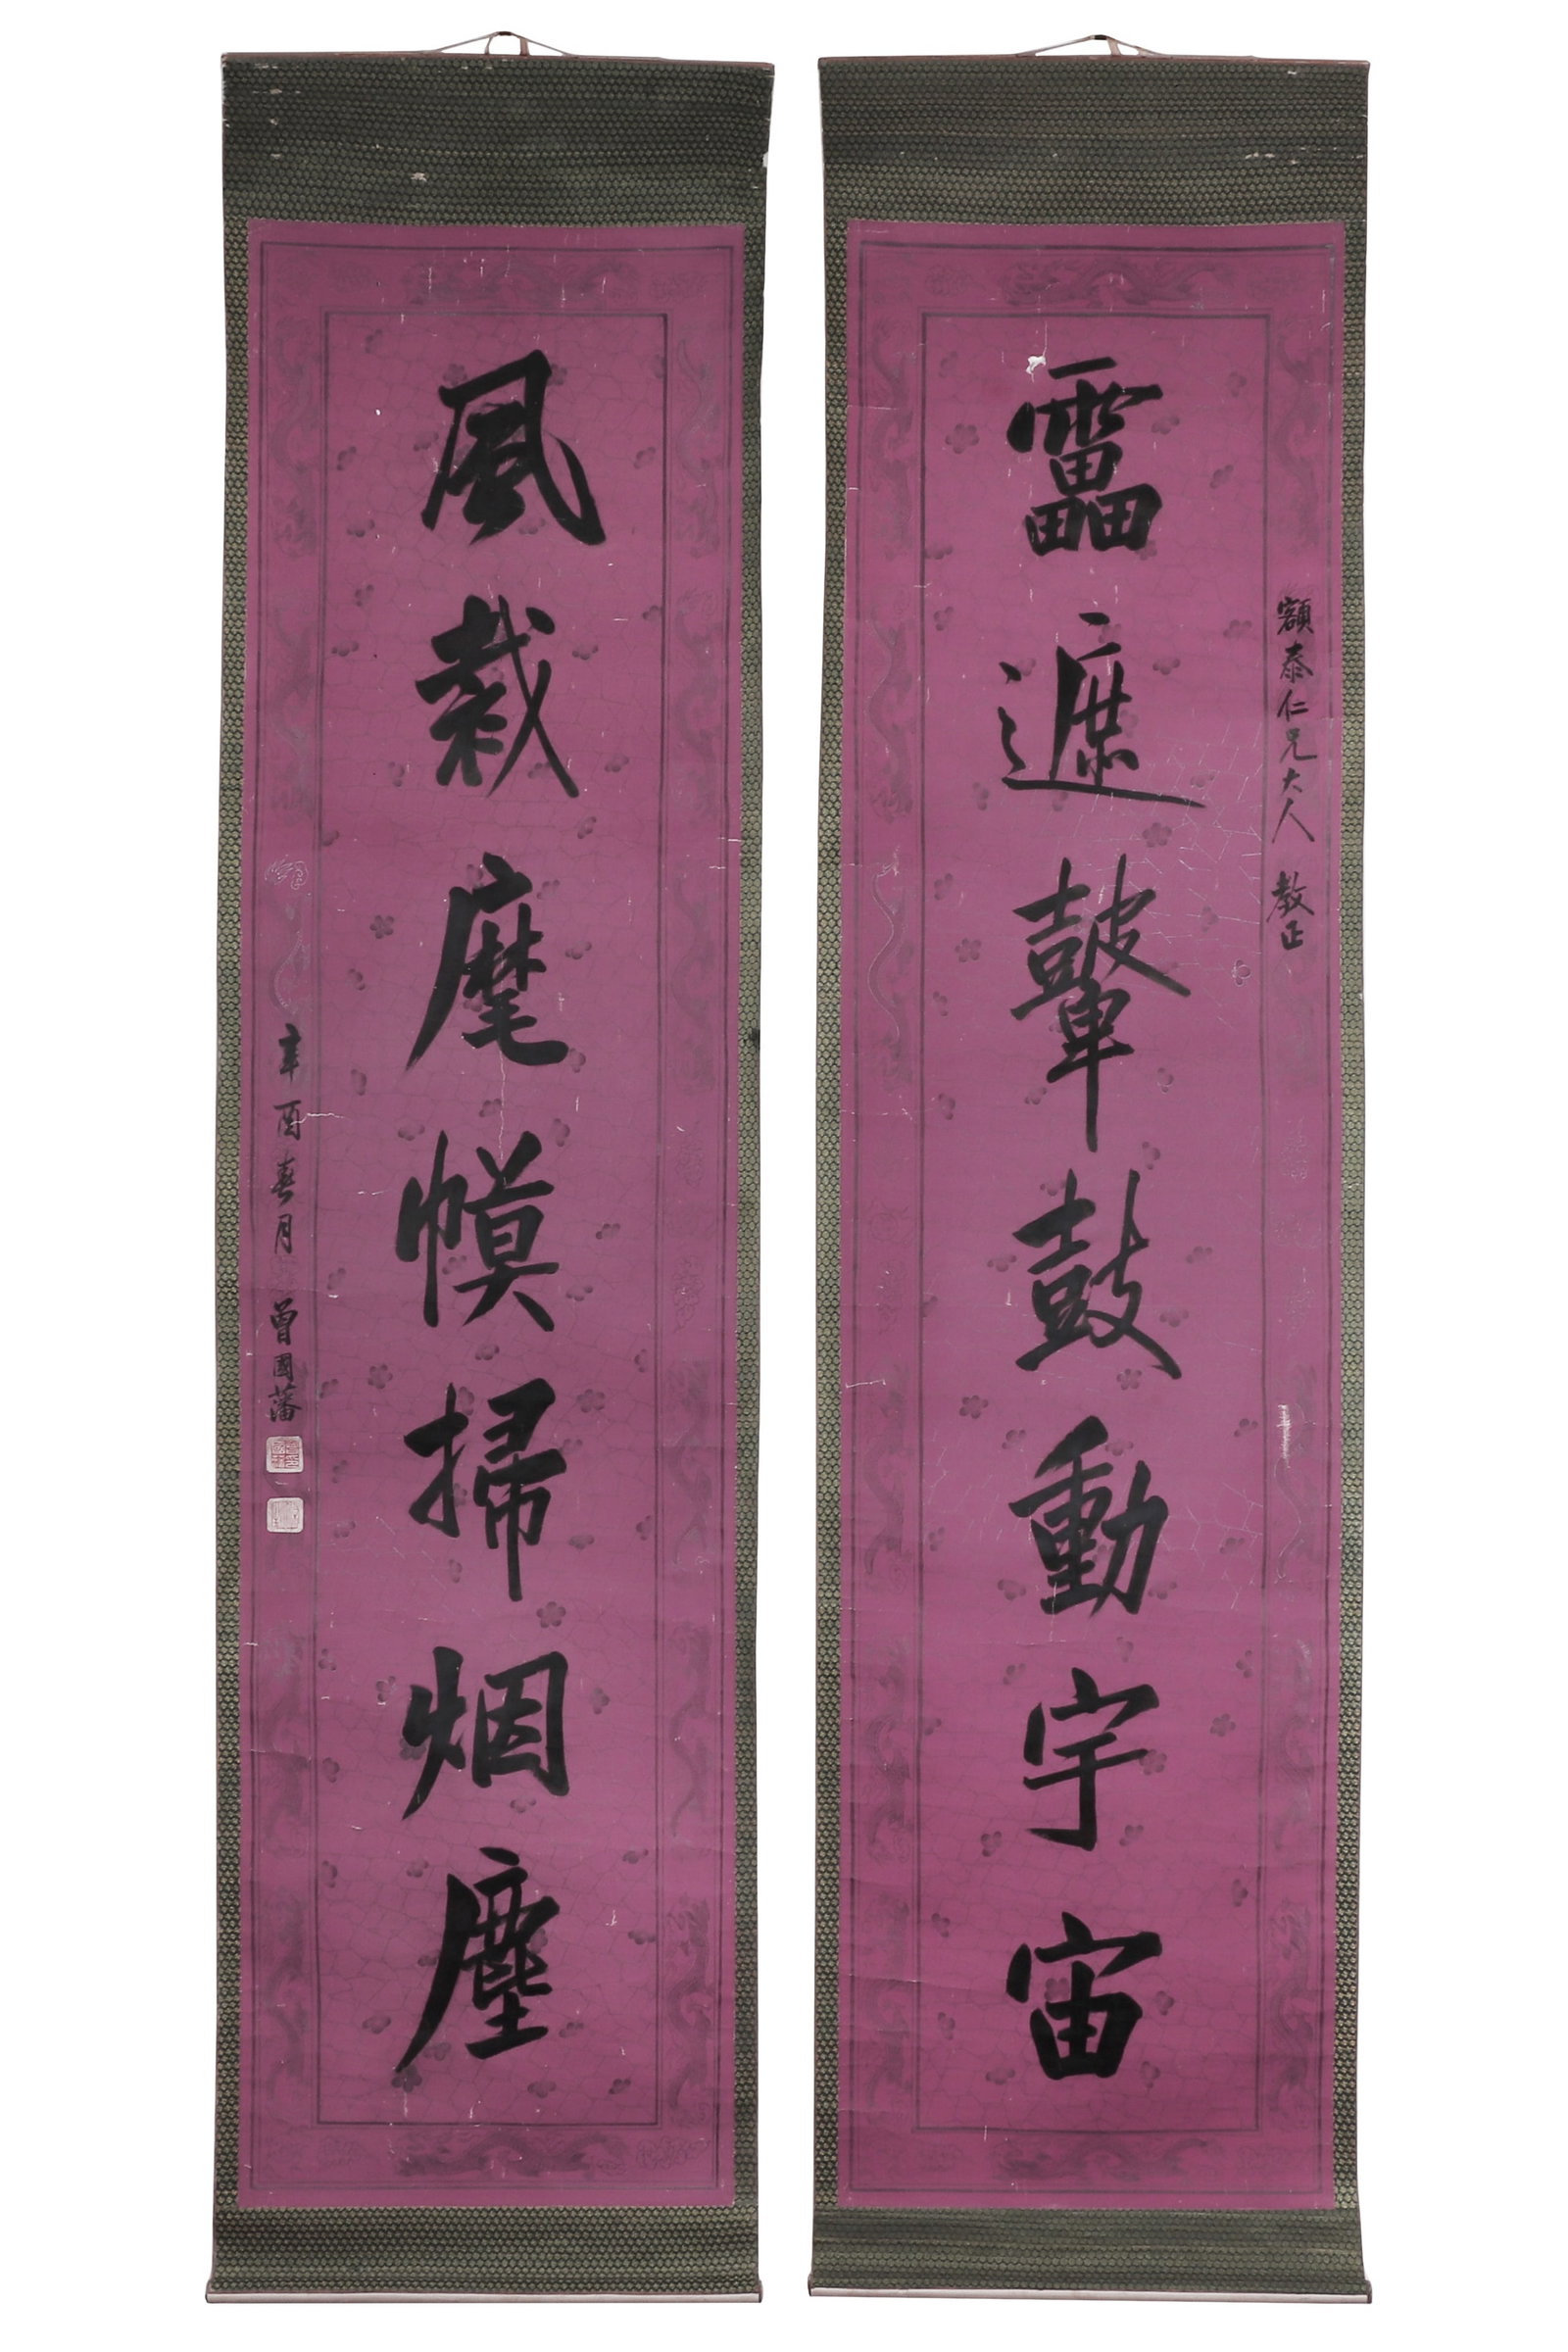 額泰仁兄大人 教正
靁遮鼙鼓動宇宙
風裁麾幙掃烟塵
辛酉春月 曾國藩